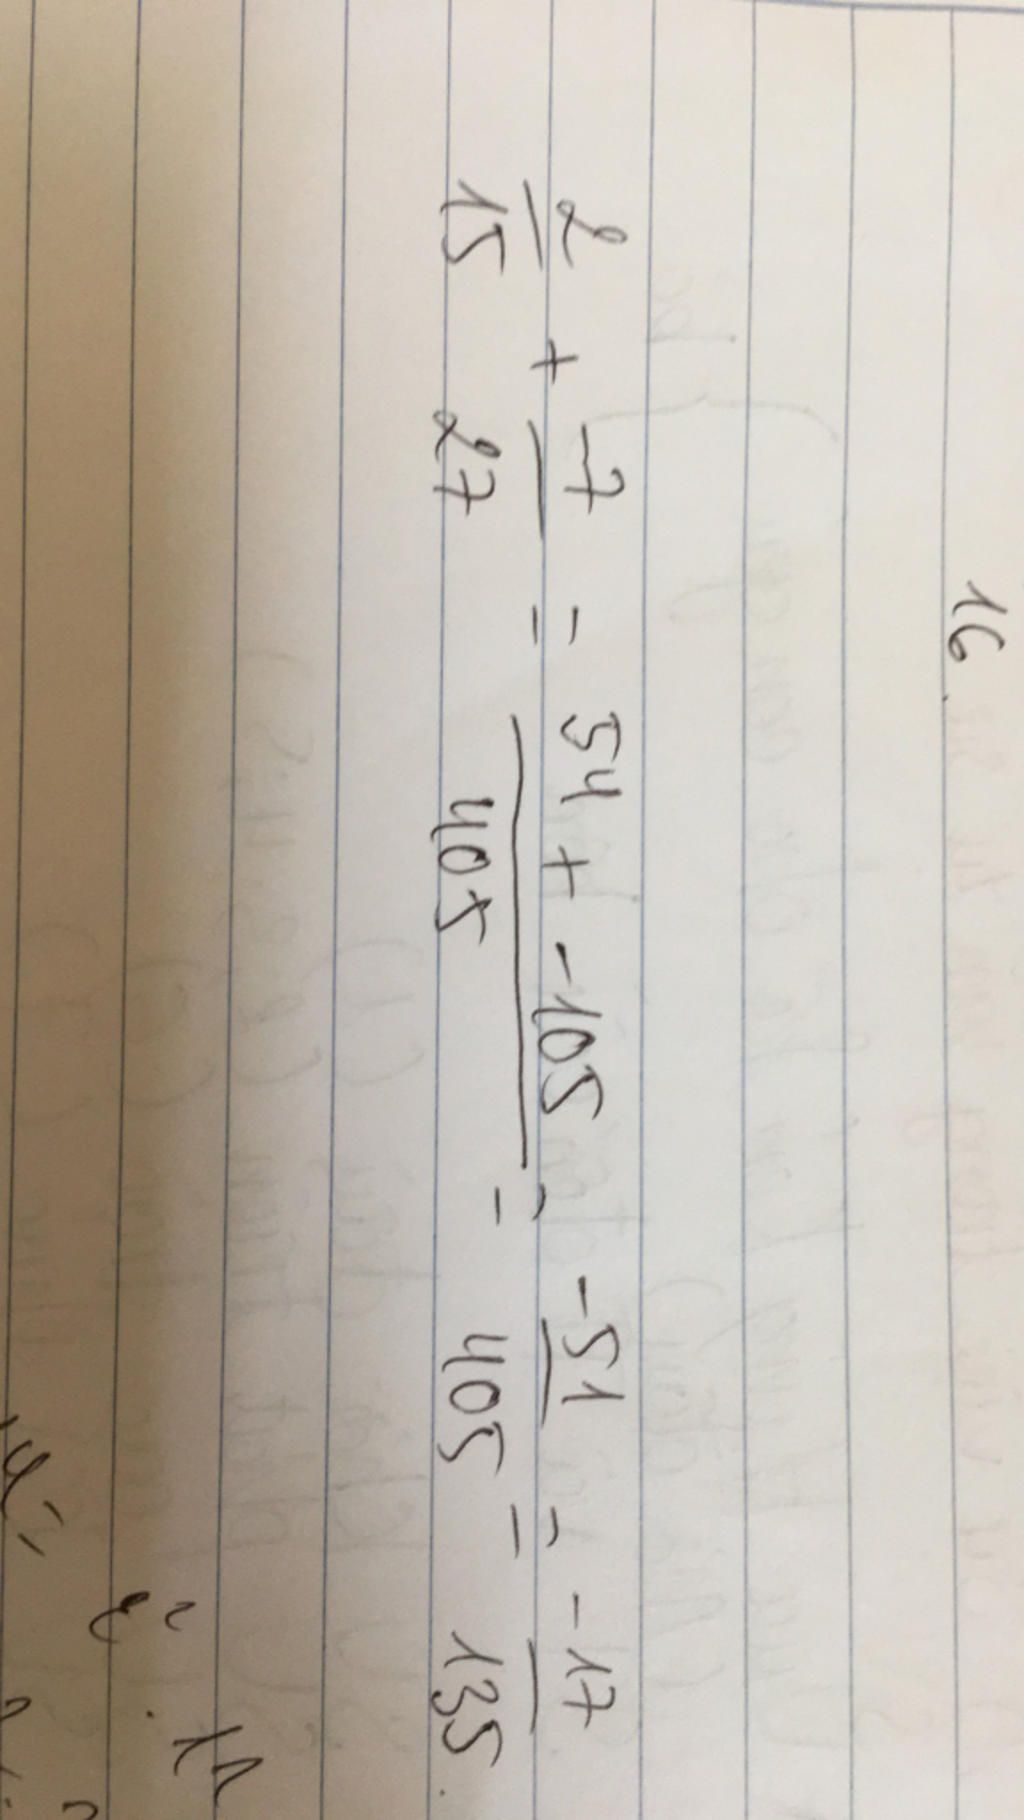 16.
2/15 + -7/27 = 54 + -105/405 = -51/405 = -17/135.